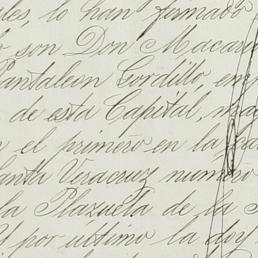 les, lo han firmado
son, Don Macar
Pantaleon Gordillo, em
de esta Capital,
n el primero en la
anta Veracruz numero
la Plazuela de la
Y por ultimo la